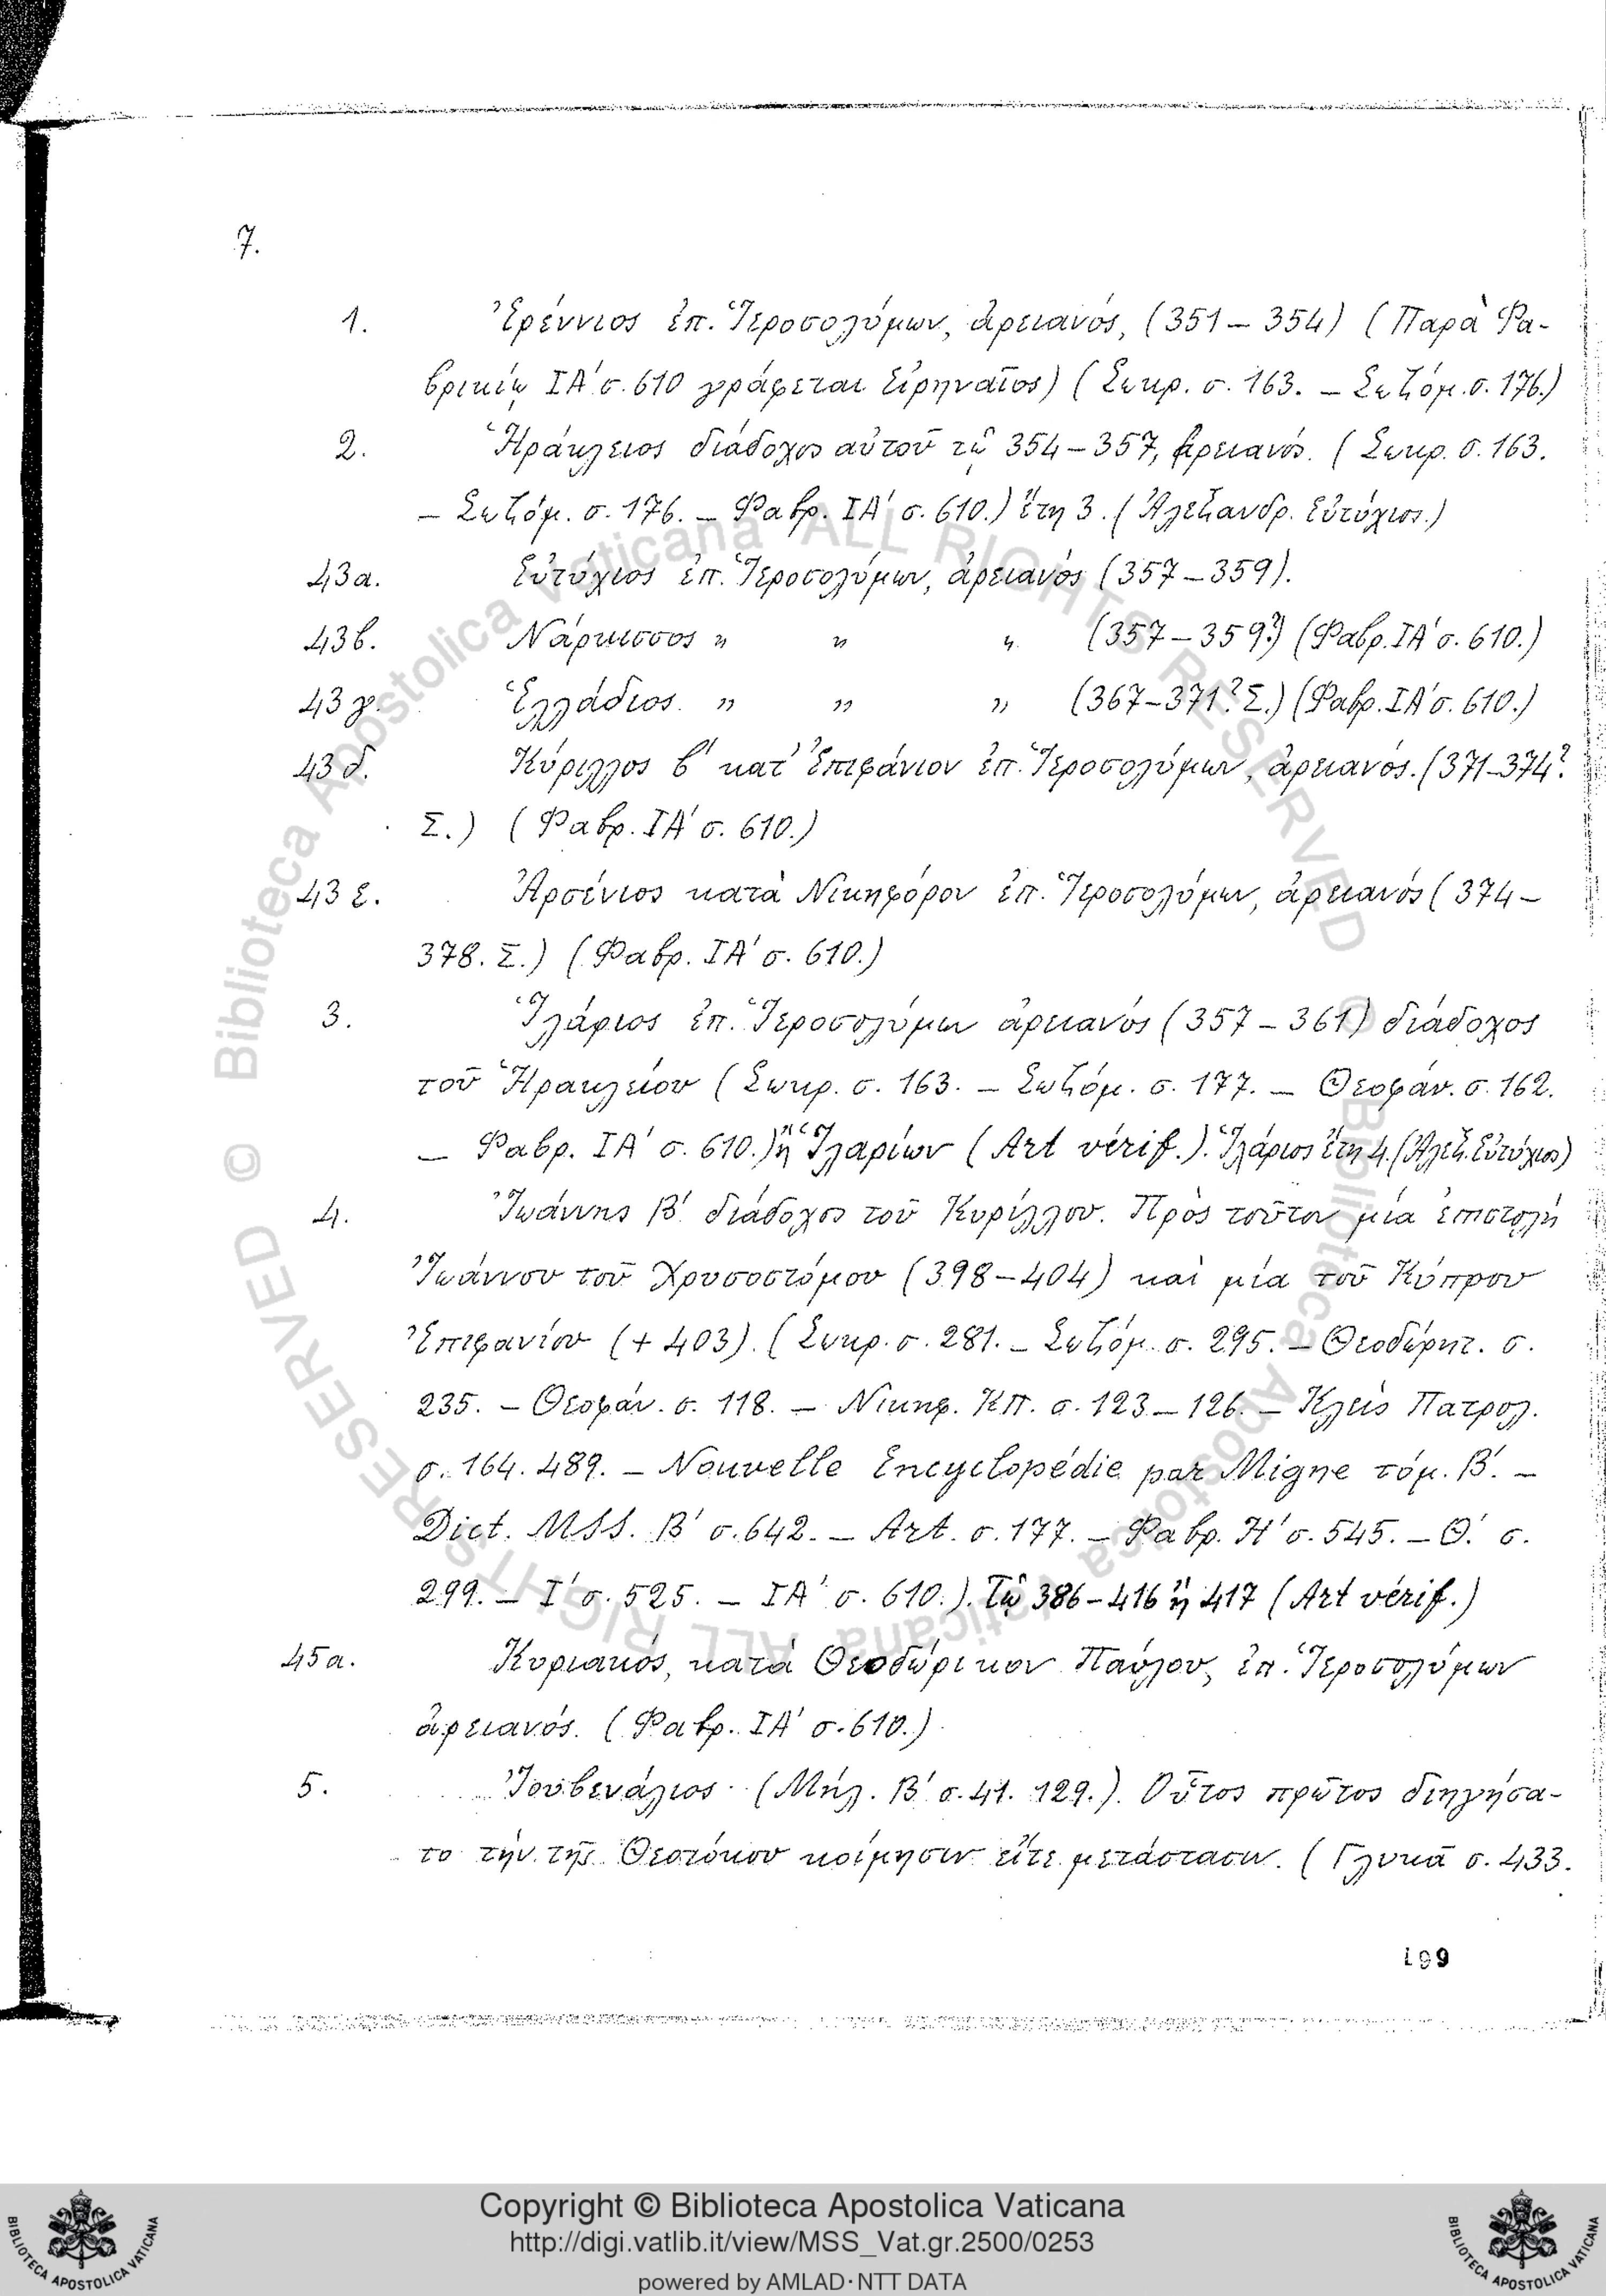 7.
1. Ἐρέννιος ἐπ. Ἱεροσολύμων, ἀρειανός, (351 – 354) (Παρὰ Φα-
βρικίῳ ΙΑ΄ σ. 610 γράφεται Εἰρηναῖος) (Σωκρ. σ. 163. – Σωζόμ. σ. 176.)
2. Ἡράκλειος διάδοχος αὐτοῦ τῷ 354 – 357, ἀρειανός. (Σωκρ. σ. 163.
– Σωζόμ. σ. 176. – Φαβρ. ΙΑ΄ σ. 610.) ἔτη 3. (Ἀλεξανδρ. Εὐτύχιος.)
43α. Εὐτύχιος ἐπ. Ἱεροσολύμων, ἀρειανός (357 – 359).
43β. Νάρκισσος " " " (357 – 359?) (Φαβρ. ΙΑ΄ σ. 610.)
43γ. Ἑλλάδιος. " " " (367 – 371? Σ.) (Φαβρ. ΙΑ΄ σ. 610.)
43δ. Κύριλλος β΄ κατ' Ἐπιφάνιον ἐπ. Ἱεροσολύμων, ἀρειανός. (371 – 374?
Σ.) (Φαβρ. ΙΑ΄ σ. 610.)
43ε. Ἀρσένιος κατὰ Νικηφόρον ἐπ. Ἱεροσολύμων, ἀρειανός (374 –
378. Σ.) (Φαβρ. ΙΑ΄ σ. 610.)
3. Ἱλάριος ἐπ. Ἱεροσολύμων ἀρειανός (357 – 361) διάδοχος
τοῦ Ἡρακλείου (Σωκρ. σ. 163. – Σωζόμ. σ. 177. – Θεοφάν. σ. 162.
– Φαβρ. ΙΑ΄ σ. 610.) ἢ Ἱλαρίων (Art vérif.). Ἱλάριος ἔτη 4. (Ἀλεξ. Εὐτύχιος)
4. Ἰωάννης Β΄ διάδοχος τοῦ Κυρίλλου. Πρὸς τοῦτον μία ἐπιστολὴ
Ἰωάννου τοῦ Χρυσοστόμου (398 – 404) καὶ μία τοῦ Κύπρου
Ἐπιφανίου (+ 403). (Σωκρ. σ. 281. – Σωζόμ. σ. 295. – Θεοδώρητ. σ.
235. – Θεοφάν. σ. 118. – Νικηφ. ΚΠ. σ. 123 – 126. – Κλεὶς Πατρολ.
σ. 164. 489. – Nouvelle Encyclopédie par Migne τόμ. Β΄. –
Dict. MSS. Β΄ σ. 642. – Art. σ. 177. – Φαβρ. Η΄ σ. 545. – Θ΄. σ.
299. – Ι΄ σ. 525. – ΙΑ΄ σ. 610.). Τῷ 386 – 416 ἢ 417 (Art vérif.)
45α. Κυριακός, κατὰ Θεοδώρικον Παύλου, ἐπ. Ἱεροσολύμων
ἀρειανός. (Φαβρ. ΙΑ΄ σ. 610.)
5. Ἰουβενάλιος (Μήλ. Β΄ σ. 41. 129.). Οὗτος πρῶτος διηγήσα-
το τὴν τῆς Θεοτόκου κοίμησιν εἴτε μετάστασιν. (Γλυκᾶ σ. 433.
199
© Biblioteca Apostolica Vaticana ALL RIGHTS RESERVED
© Biblioteca Apostolica Vaticana ALL RIGHTS RESERVED
Copyright © Biblioteca Apostolica Vaticana
http://digi.vatlib.it/view/MSS_Vat.gr.2500/0253
powered by AMLAD·NTT DATA
BIBLIOTECA APOSTOLICA VATICANA
BIBLIOTECA APOSTOLICA VATICANA